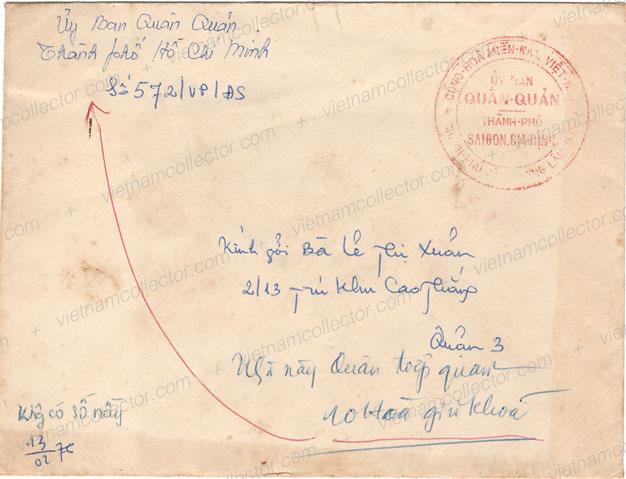 Ủy Ban Quân Quản
Thành phố Hồ Chí Minh
Số 572/VP/ĐS
CỘNG HÒA MIỀN NAM VIỆT N
ỦY BAN
QUÂN-QUẢN
THÀNH-PHỐ
SAIGON, GIA ĐỊNH
Kính gởi Bà Lê Thị Xuân
2/13 Khu Cao Thắng
Quận 3
Nhà này Quân tiếp quản
giữ khoá
Kg có số này
13
02 76
vietnamcollector.com